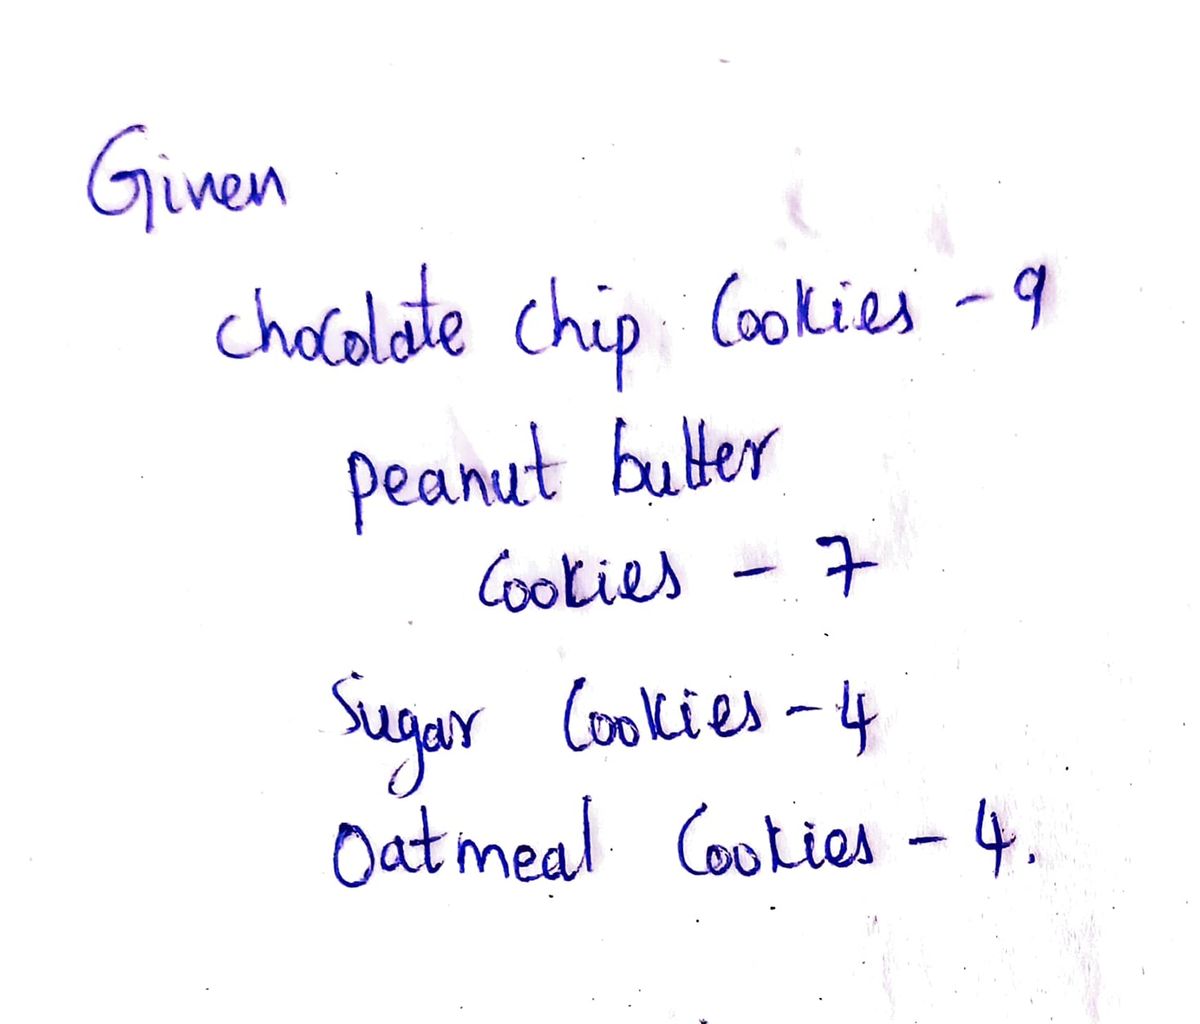 Given
chocolate chip Cookies - 9
peanut butter
Cookies - 7
Sugar Cookies - 4
Oatmeal Cookies - 4.